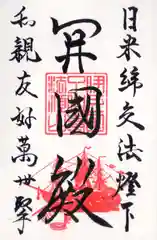 日米締交法燈下
開國殿
和親友好萬世堅